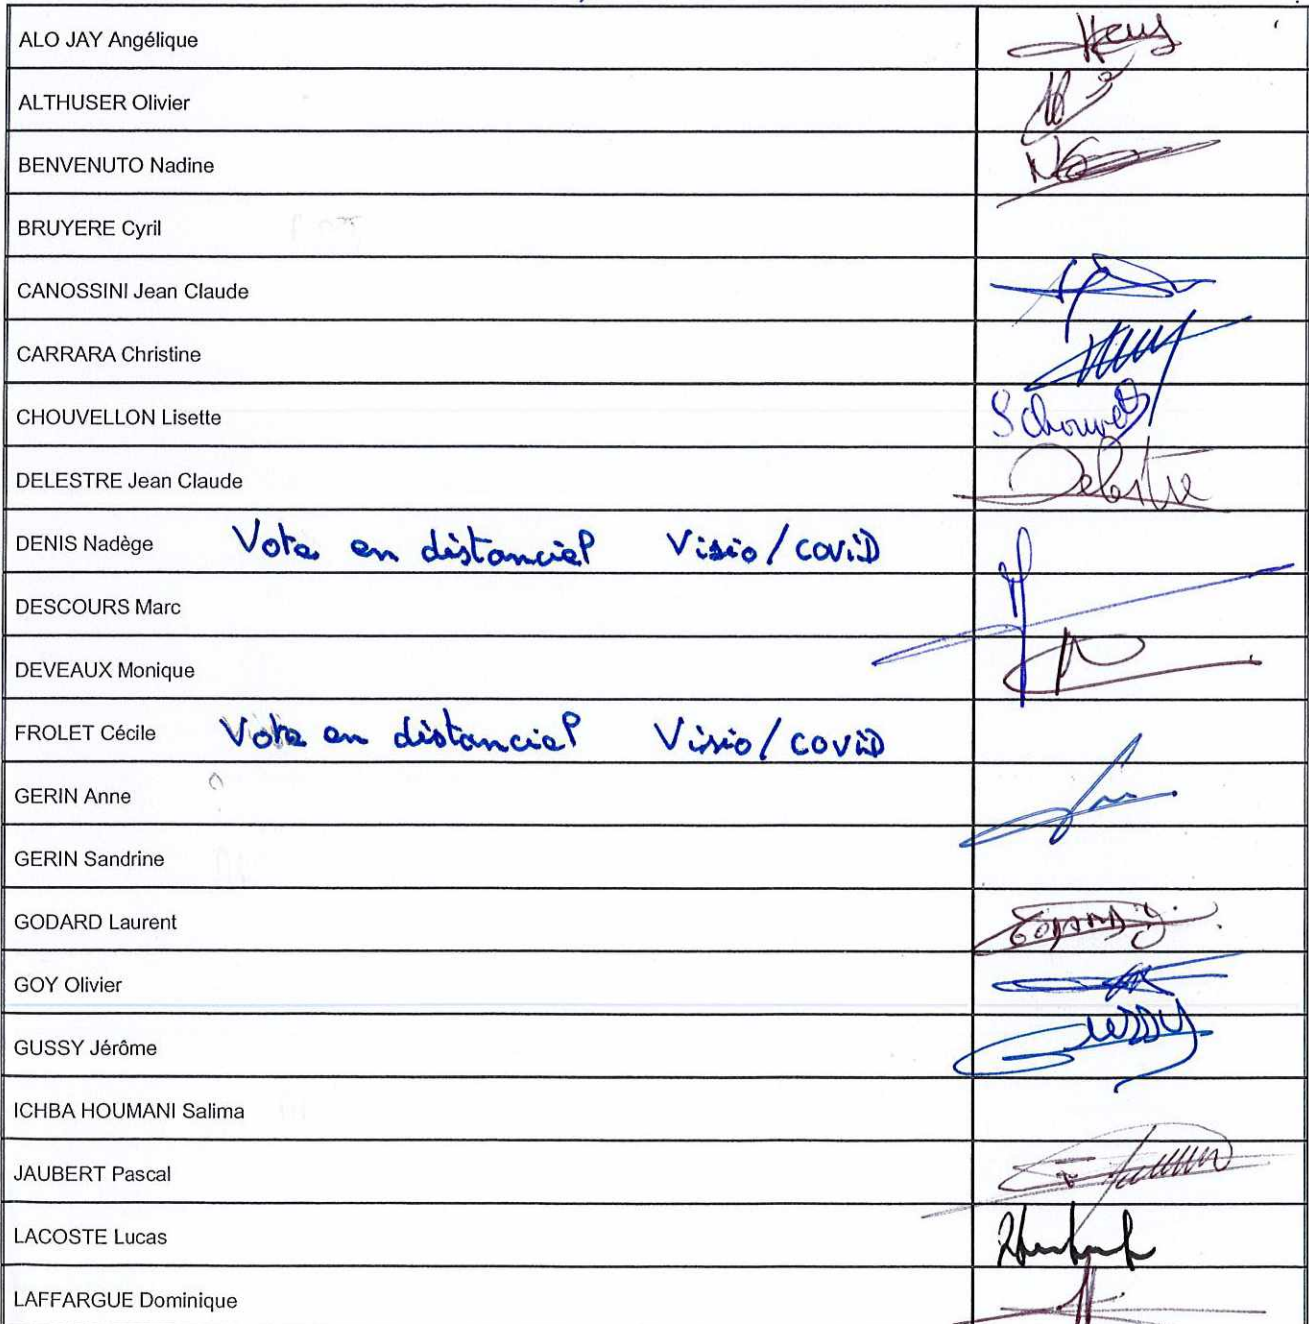 ALO JAY Angélique
ALTHUSER Olivier
BENVENUTO Nadine
BRUYERE Cyril
CANOSSINI Jean Claude
CARRARA Christine
CHOUVELLON Lisette
DELESTRE Jean Claude Delestre
DENIS Nadège Vote en distanciel Visio/covid
DESCOURS Marc
DEVEAUX Monique
FROLET Cécile Vote en distanciel Visio/covid
GERIN Anne
GERIN Sandrine
GODARD Laurent
GOY Olivier
GUSSY Jérôme GUSSY
ICHBA HOUMANI Salima
JAUBERT Pascal
LACOSTE Lucas
LAFFARGUE Dominique